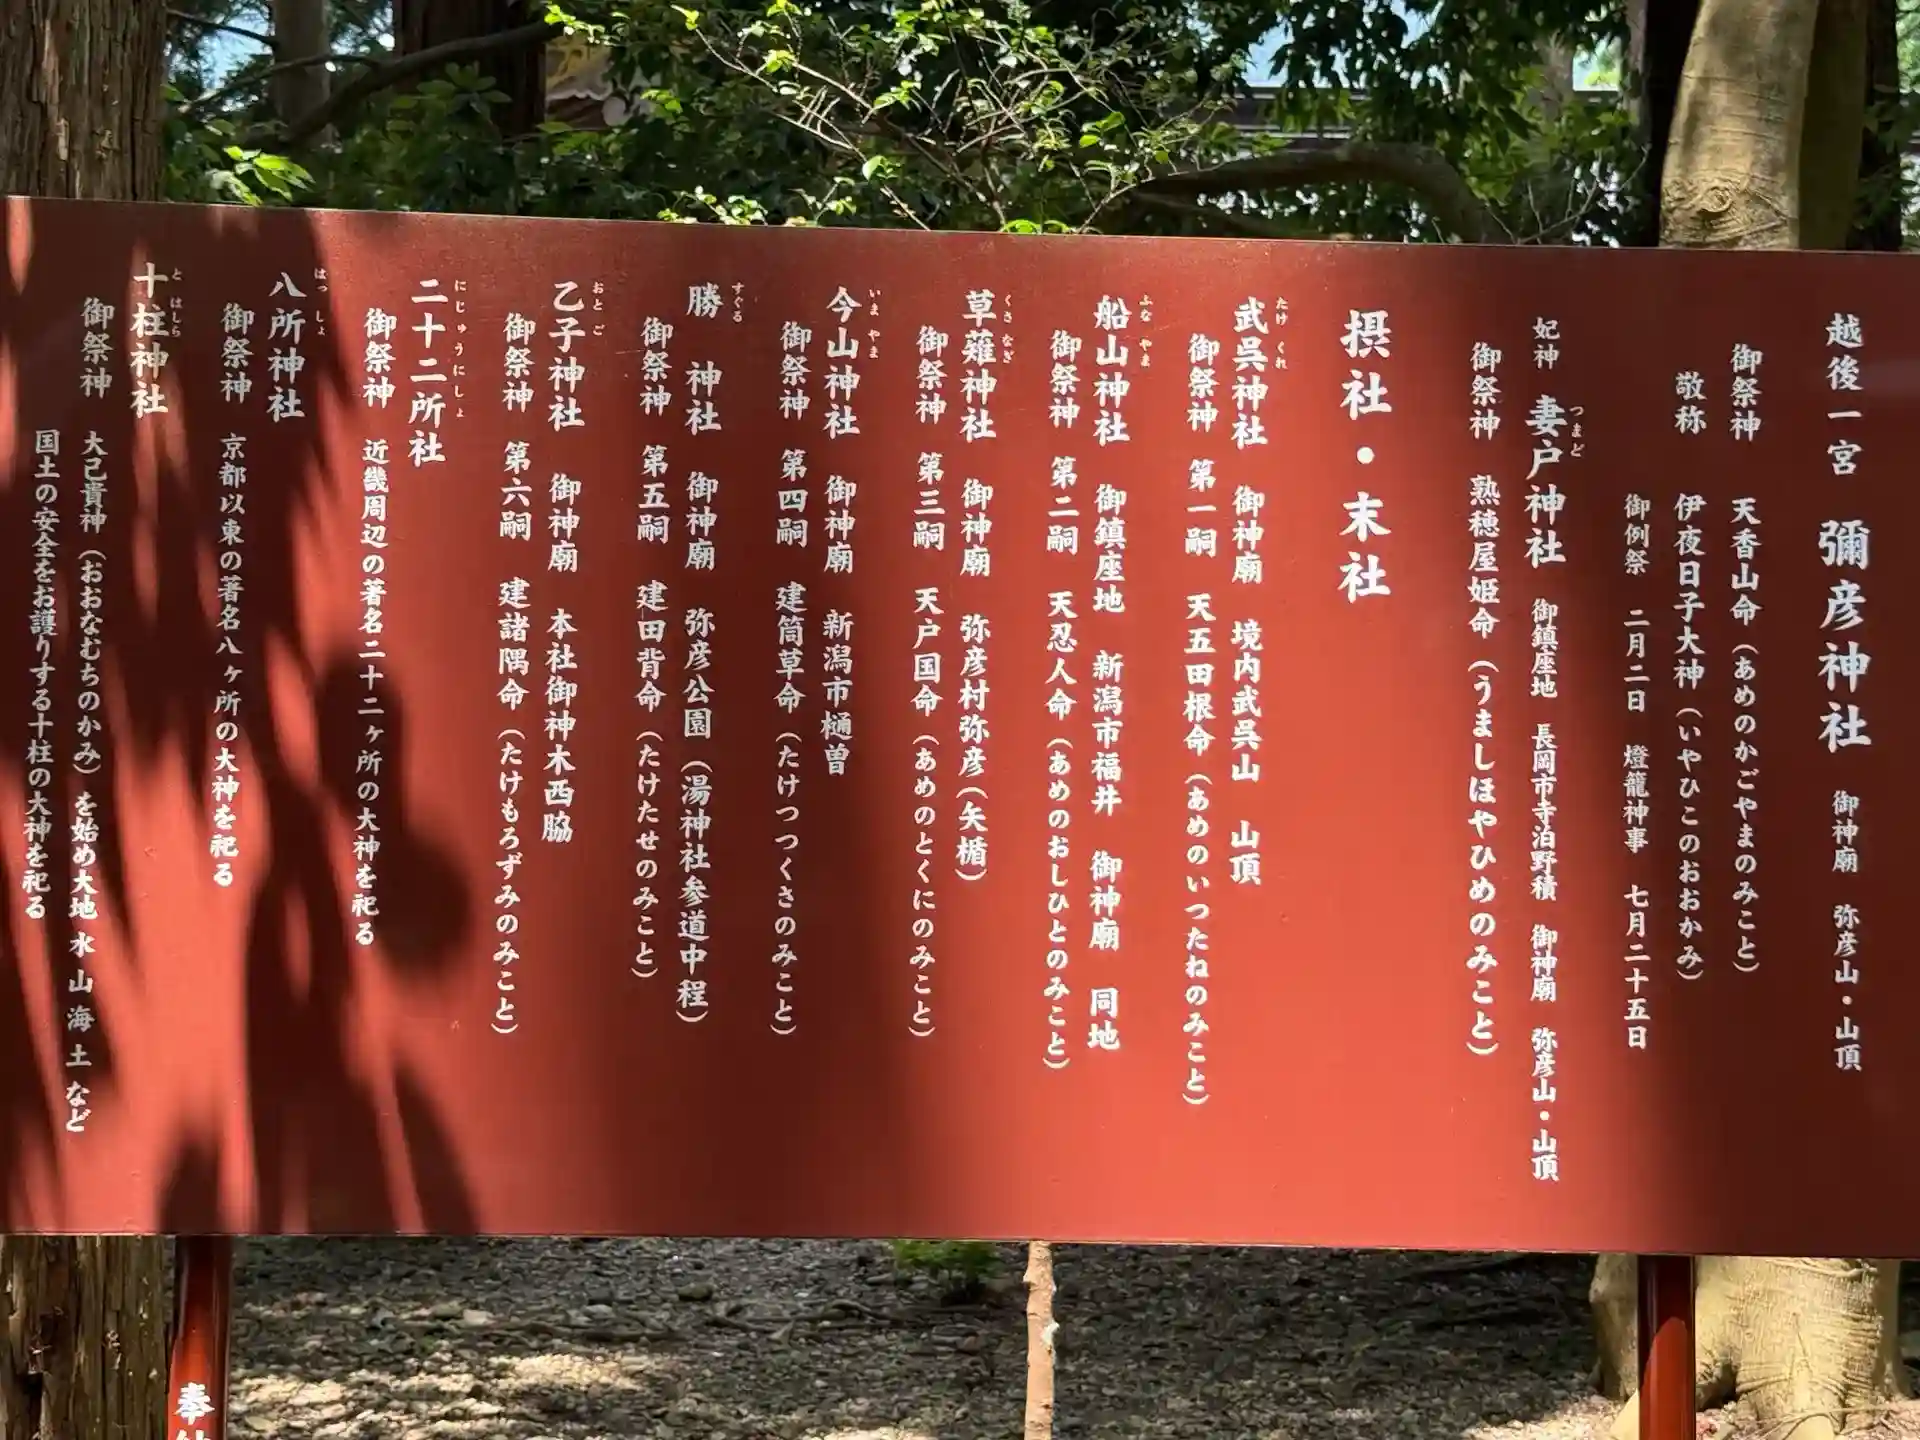 越後一宮 彌彦神社 御神廟 弥彦山・山頂
御祭神 天香山命（あめのかごやまのみこと）
敬称 伊夜日子大神（いやひこのおおかみ）
御例祭 二月二日 燈籠神事 七月二十五日
妃神 妻戸神社 御鎮座地 長岡市寺泊野積 御神廟 弥彦山・山頂
つまど
御祭神 熟穂屋姫命（うましほやひめのみこと）
摂社・末社
武呉神社 御神廟 境内武呉山 山頂
たけ くれ
御祭神 第一嗣 天五田根命（あめのいつたねのみこと）
船山神社 御鎮座地 新潟市福井 御神廟 同地
ふな やま
御祭神 第二嗣 天忍人命（あめのおしひとのみこと）
草薙神社 御神廟 弥彦村弥彦（矢楯）
くさ なぎ
御祭神 第三嗣 天戸国命（あめのとくにのみこと）
今山神社 御神廟 新潟市樋曽
いま やま
御祭神 第四嗣 建筒草命（たけつつくさのみこと）
勝 神社 御神廟 弥彦公園（湯神社参道中程）
すぐる
御祭神 第五嗣 建田背命（たけたせのみこと）
乙子神社 御神廟 本社御神木西脇
おと ご
御祭神 第六嗣 建諸隅命（たけもろずみのみこと）
二十二所社
にじゅうにしょ
御祭神 近畿周辺の著名二十二ヶ所の大神を祀る
八所神社
はっ しょ
御祭神 京都以東の著名八ヶ所の大神を祀る
十柱神社
と はしら
御祭神 大己貴神（おおなむちのかみ）を始め大地 水 山 海 土 など
国土の安全をお護りする十柱の大神を祀る
奉